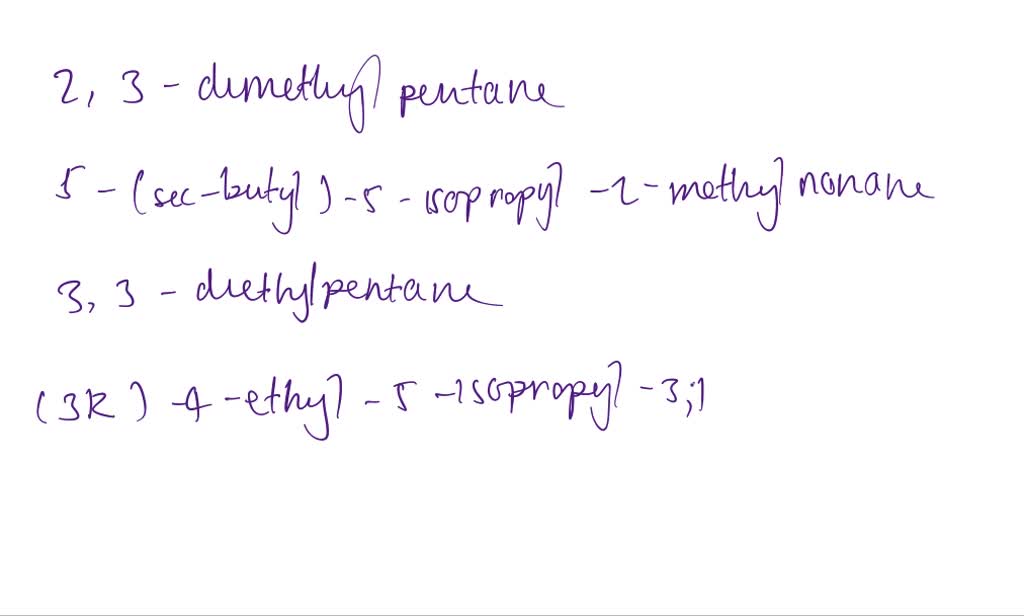 2, 3 - dimethyl pentane
5 - (sec-butyl) - 5 - isopropyl - 2 - methyl nonane
3, 3 - diethylpentane
(3R) - 4 - ethyl - 5 - isopropyl - 3,